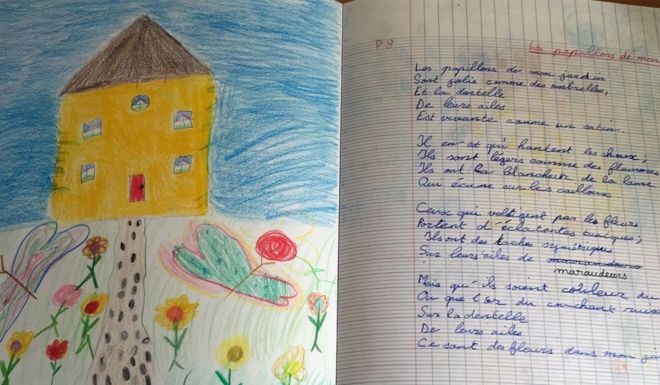 P8
Les papillons de mon
Les papillons de mon jardin
Sont jolis comme des ombrelles,
Et la dentelle
De leurs ailes
Est vivante comme un satin.
Il en est qui hantent les choux,
Ils sont légers comme des flammes
Ils ont la blancheur de la lame
Qui écume sur les cailloux
Ceux qui voltigent par les fleurs
Portent d'éclatantes tuniques;
Ils ont des tache
Sur leurs ailes de
maraudeurs
Mais qu'ils soient couleur du
Ou que l'or du couchant ruis
Sur la dentelle
De leurs ailes
Ce sont des fleurs dans mon ja